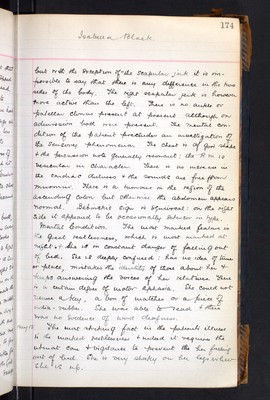 174
Isabella Black.
but with the exception of the scapular jerk it is im-
possible to say that there is any difference in the two
sides of the body. The right scapular jerk is however
more active than the left. There is no ankle or
patellar clonus present at present although on
admission both were present. The mental con-
dition of the patient precludes an investigation of
the sensory phenomena. The chest is of good shape
& the percussion note generally resonant: the R.M. is
vesicular in character. There is no increase in
the cardiac dulness & the sounds are free from
murmurs. There is a tumour in the region of the
ascending colon but otherwise the abdomen appears
normal. Babinski's sign is equivocal: on the right
side it appeared to be occasionally extensor in type.
Mental Condition. The most marked feature is
the great restlessness, which is most marked at
night & she is in constant danger of falling out
of bed. She is deeply confused: has no idea of time
or place, mistakes the identity of those about her &
answering the voices of her relatives. There
is a certain degree of motor aphasia. She could not
name a key, a box of matches or a piece of
india-rubber. She was able to read & there
was no evidence of word deafness.
The most striking fact in the patient's illness
is the marked restlessness & indeed it requires the
utmost care & vigilance to prevent her from falling
out of bed. She is very shaky on her legs when
she is up.